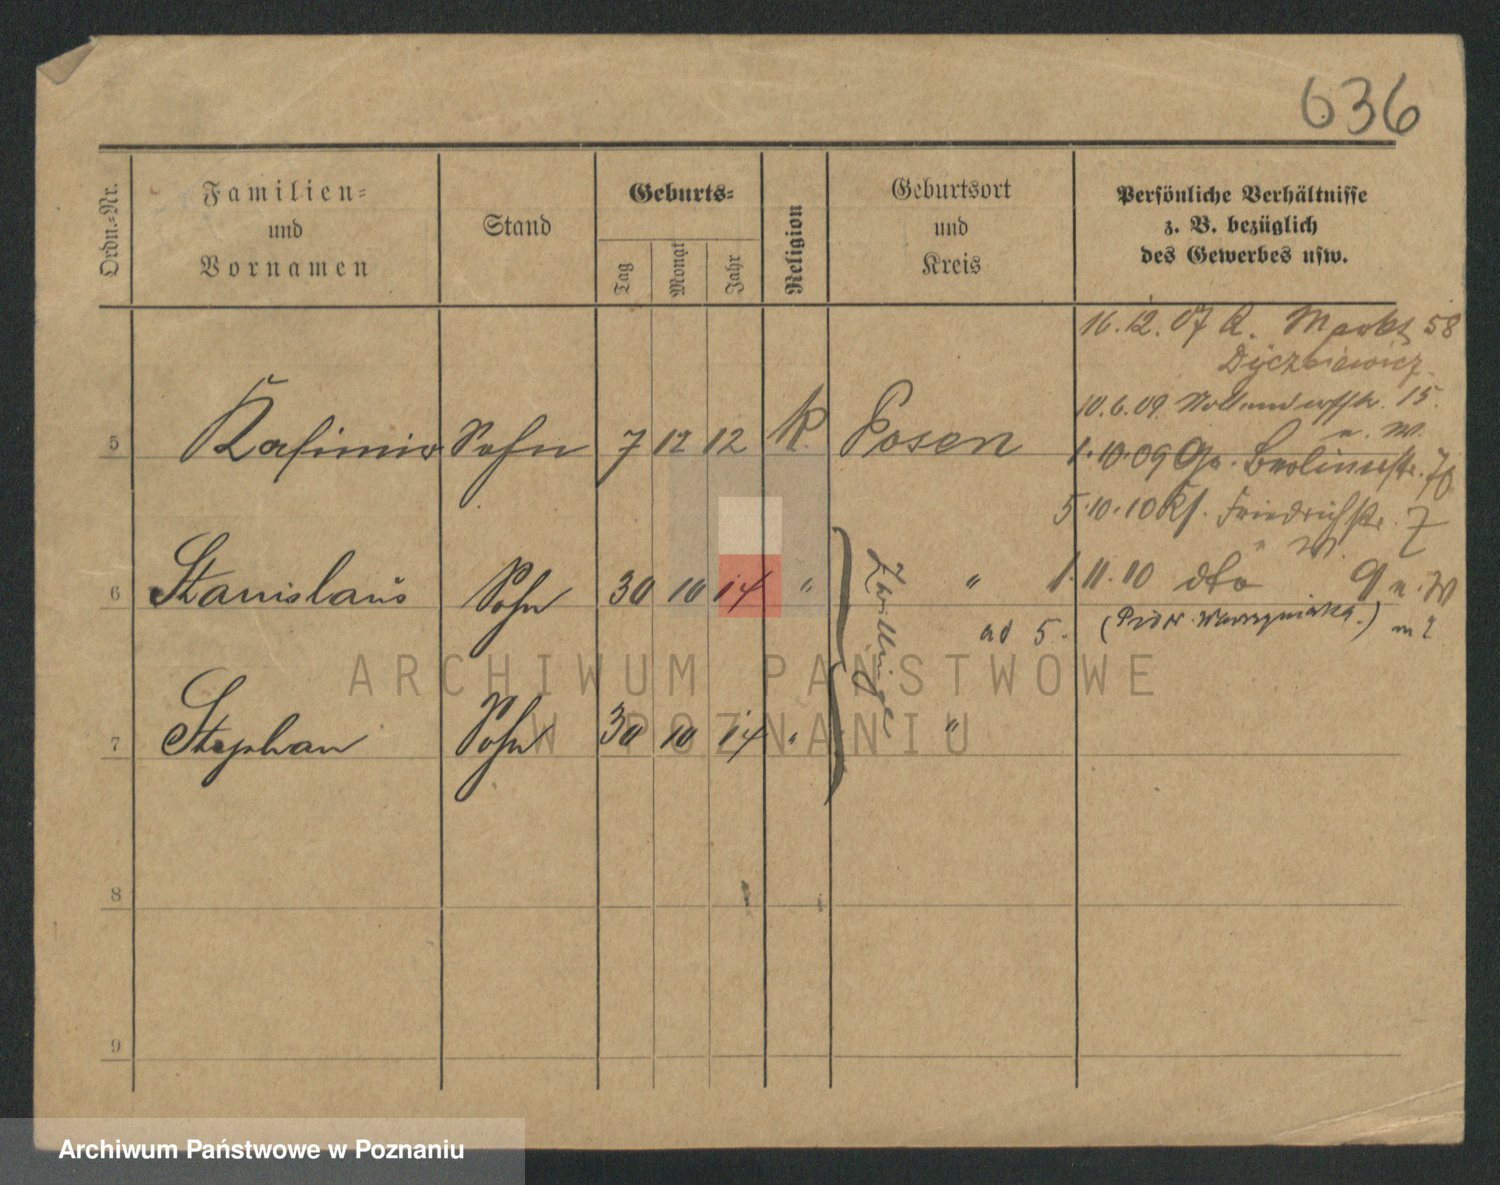 636
Ordn.-Nr.
Familien-
und
Vornamen
Stand
Geburts-
Tag
Monat
Jahr
Religion
Geburtsort
und
Kreis
Persönliche Verhältnisse
z. B. bezüglich
des Gewerbes usw.
16.12.07 A. Markt 58
10.6.09. 15.
u. W.
5 Kasimir Sohn 7 12 12 K. Posen
1.10.09 Gr. Berlinerstr.
5.10.10 Friedrichstr. 7
" W.
6 Stanislaus Sohn 30 10 14 " " 1.11.10 dto 9
ad 5.
Zwillinge
ARCHIWUM PAŃSTWOWE
W POZNANIU
7 Stephan Sohn 30 10 14 " "
8
9
Archiwum Państwowe w Poznaniu